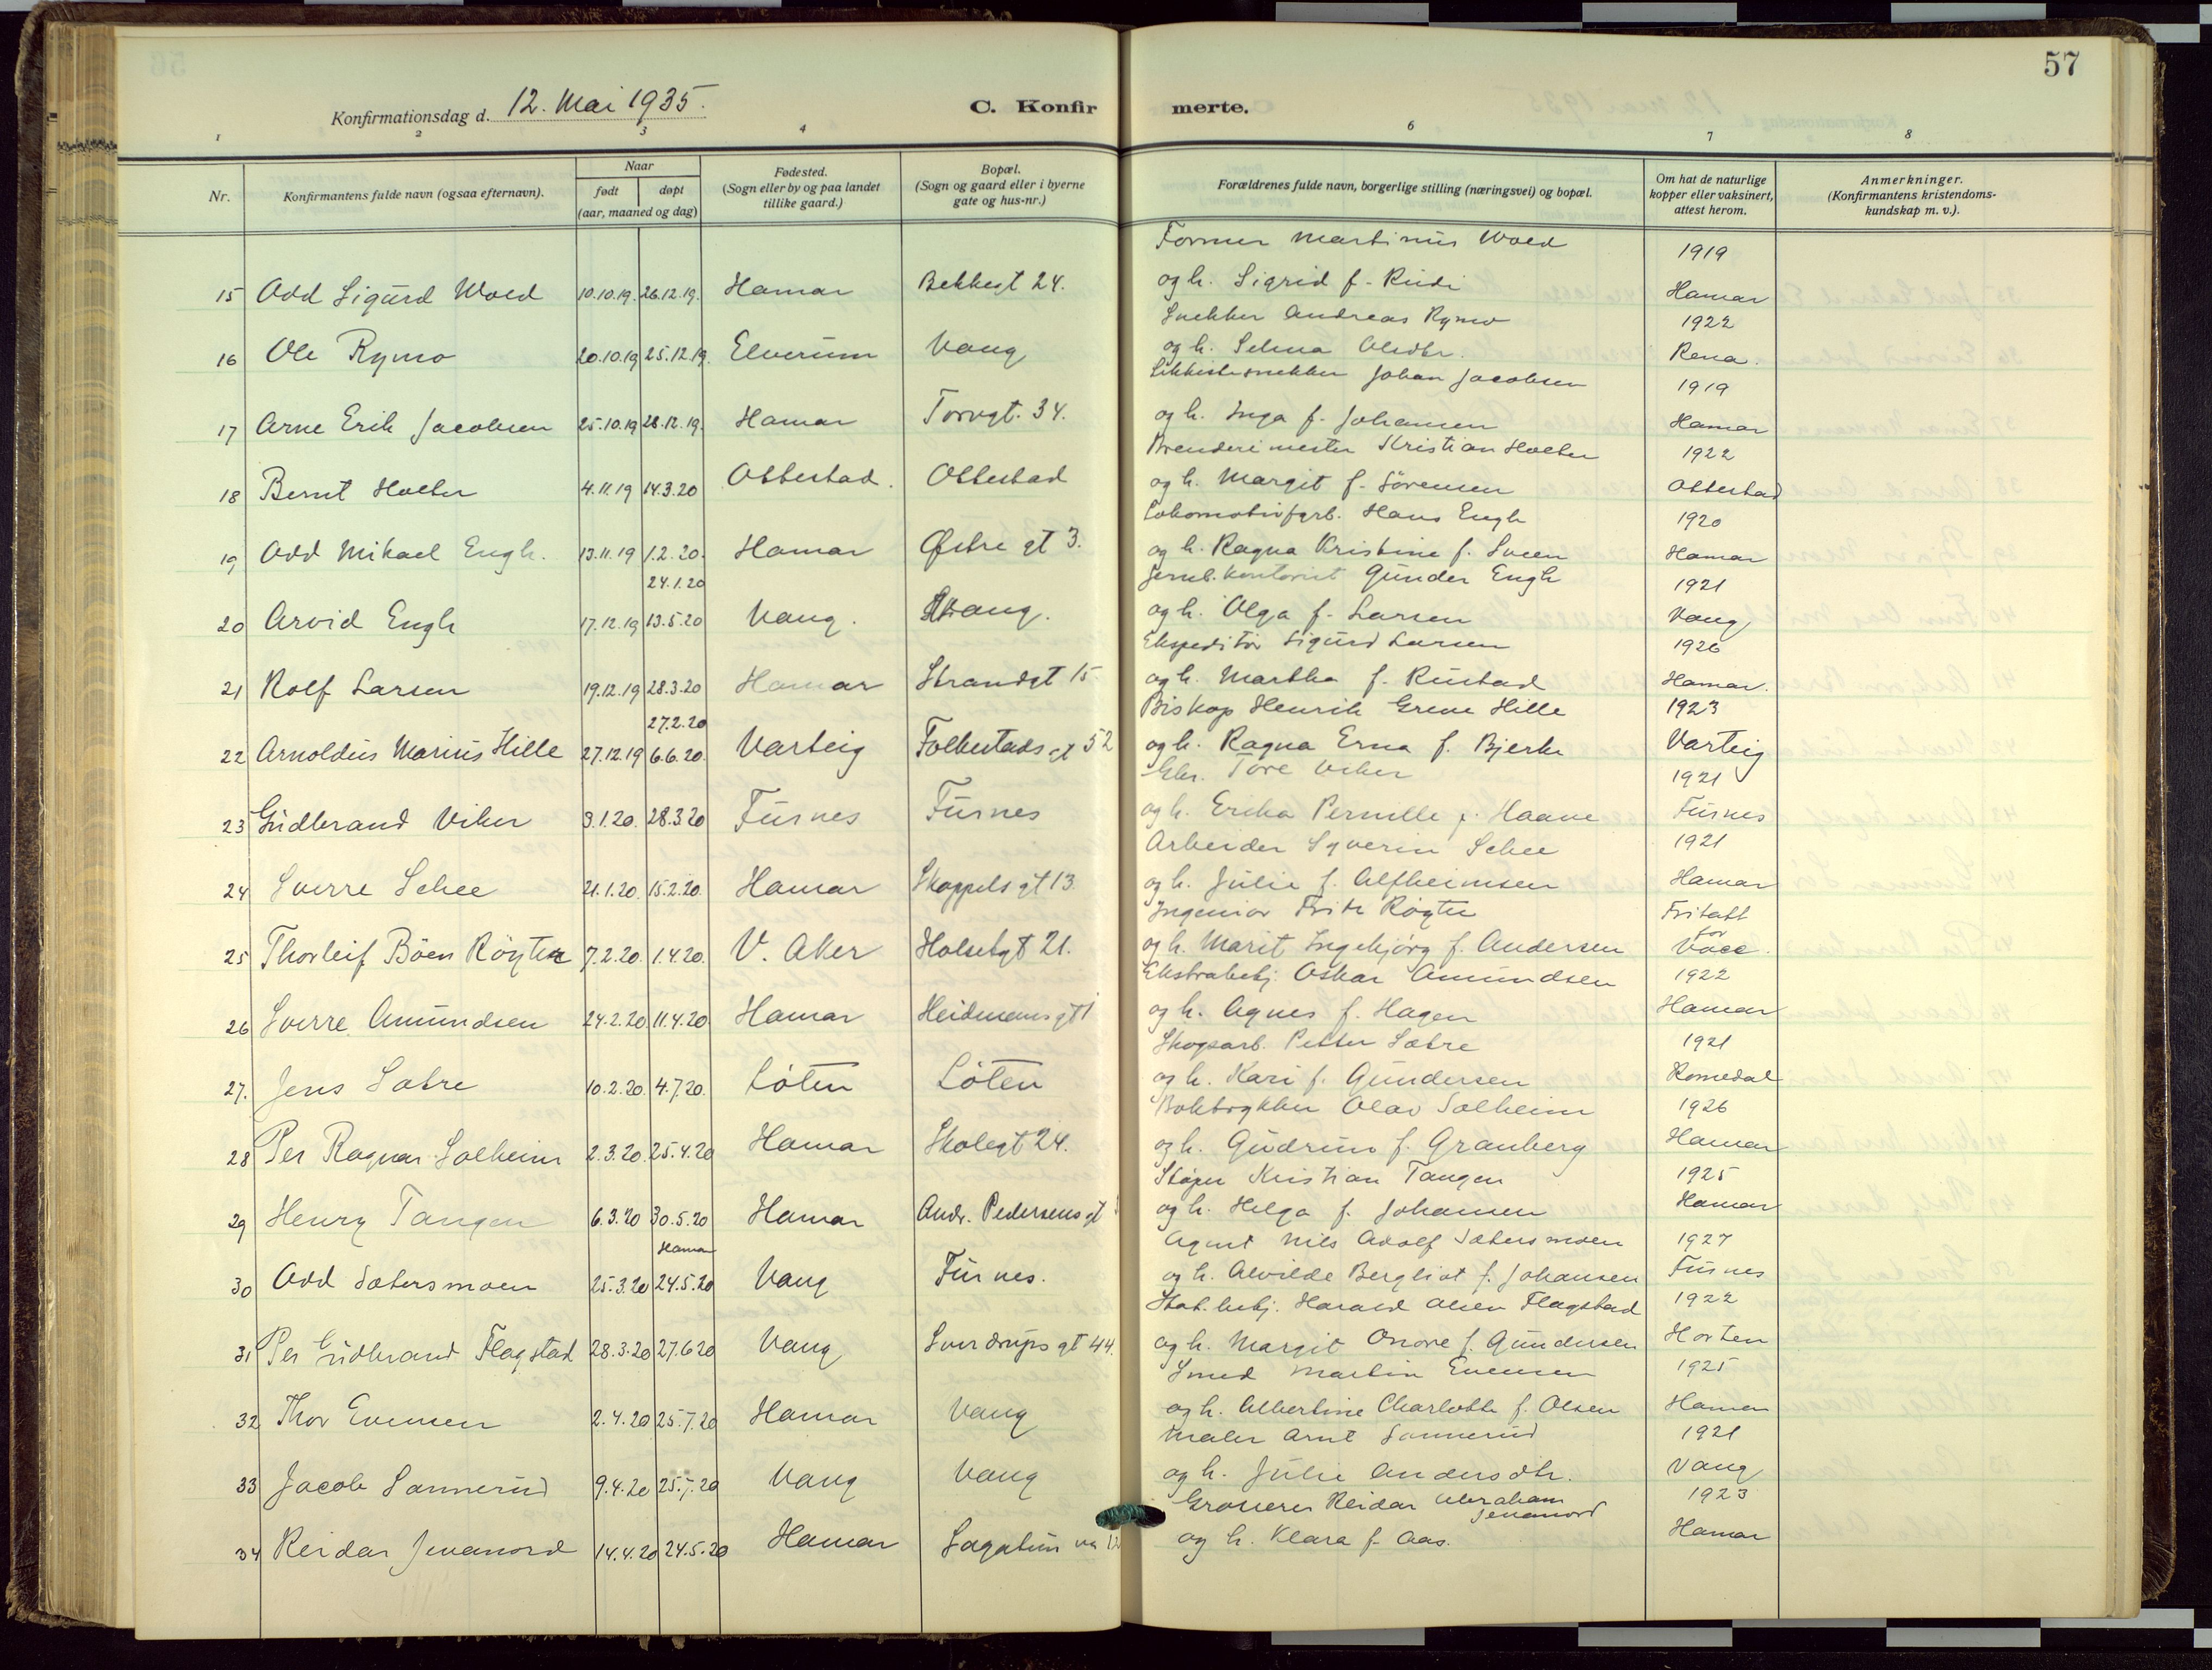 57
Konfirmationsdag d. 12. Mai 1935.
C. Konfirmerte.
1 2 3 4 6 7 8
Nr.
Konfirmantens fulde navn (ogsaa efternavn).
Naar
født døpt
(aar, maaned og dag)
Fødested.
(Sogn eller by og paa landet
tillike gaard.)
Bopæl.
(Sogn og gaard eller i byerne
gate og hus-nr.)
Forældrenes fulde navn, borgerlige stilling (næringsvei) og bopæl.
Om hat de naturlige
kopper eller vaksinert,
attest herom.
Anmerkninger.
(Konfirmantens kristendoms-
kundskap m. v.).
Former Martinus Wold 1919
15 Odd Sigurd Wold 10.10.19. 26.12.19. Hamar Bekkegt 24. og h. Sigrid f. Rudi Hamar
Snekker Andreas Rymo 1922
16 Ole Rymo 20.10.19 25.12.19. Elverum Vang og h. Selma Olsdtr. Rena.
Likkistesnekker Johan Jacobsen 1919
17 Arne Erik Jacobsen 25.10.19 28.12.19. Hamar Torvgt. 34. og h. Inga f. Johansen Hamar
Brenderimester Kristian Holter 1922
18 Bernt Holter 4.11.19 14.3.20 Ottestad. Ottestad og h. Margit f. Sörensen Ottestad
Lokomotivfyrb. Hans Engh 1920
19 Odd Mikael Engh. 13.11.19 1.2.20. Hamar Østre gt 3. og h. Ragna Kristine f. Sveen Hamar
24.1.20 Jernb. kontorist Gunder Engh 1921
20 Arvid Engh 17.12.19 13.5.20 Vang. Vang. og h. Olga f. Larsen Vang
Ekspeditör Sigurd Larsen 1926
21 Rolf Larsen 19.12.19 28.3.20 Hamar Strandgt 15 og h. Martha f. Rustad Hamar.
27.2.20 Biskop Henrik Greve Hille 1923
22 Arnoldus Marius Hille 27.12.19 6.6.20. Varteig Folkestads gt 52 og h. Ragna Erna f. Bjerke Varteig
Gbr. Tore Viker 1921
23 Gudbrand Viker 3.1.20. 28.3.20 Furnes Furnes og h. Erika Pernille f. Haave Furnes
Arbeider Syverin Schee 1921
24 Sverre Schee 21.1.20. 15.2.20. Hamar Skappels gt 13. og h. Julie f. Alfheimsen Hamar
Ingeniör Fritz Røgter Fritatt
25 Thorleif Böen Röyter 7.2.20. 1.4.20. V. Aker Holsetgt 21. og h. Marit Ingebjørg f. Andersen for Vacc.
Ekstrabetj. Oskar Amundsen 1922
26 Sverre Amundsen 24.2.20 11.4.20 Hamar Heidmans gt 1 og h. Agnes f. Hagen Hamar
Skogsarb. Petter Sætre 1921
27. Jens Sætre 10.2.20. 4.7.20. Löten Löten og h. Kari f. Gundersen Romedal
Boktrykker Olav Solheim 1926
28 Per Ragnar Solheim 2.3.20. 25.4.20 Hamar Skolegt 24. og h. Gudrun f. Granberg Hamar
Støper Kristian Tangen 1925
29 Henry Tangen 6.3.20 30.5.20 Hamar Andr. Pedersens gt og h. Helga f. Johansen Hamar
Hamar Agent Nils Adolf Sætersmoen 1927
30 Odd Sætersmoen 25.3.20 24.5.20 Vang Furnes. og h. Alvilde Bergliot f. Johansen Furnes
Stat. betj. Harald Olsen Flagstad 1922
31 Per Gudbrand Flagstad 28.3.20 27.6.20 Vang Sverdrups gt 44. og h. Margit Onore f. Gundersen Horten
Smed Martin Evensen 1925
32 Thor Evensen 2.4.20 25.7.20 Hamar Vang og h. Albertine Charlotte f. Olsen Hamar
Maler Arnt Sannerud 1921
33 Jacob Sannerud 9.4.20 25.7.20 Vang Vang og h. Julie Andersdtr. Vang
Grosserer Reidar Abraham Jevanord 1923
34 Reidar Jevanord 14.4.20 24.5.20 Hamar Sagatun og h. Klara f. Aas. Hamar